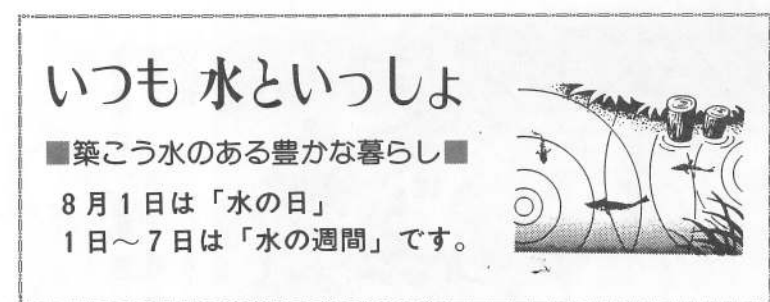 いつも 水といっしょ
■築こう水のある豊かな暮らし■
8月1日は「水の日」
1日～7日は「水の週間」です。